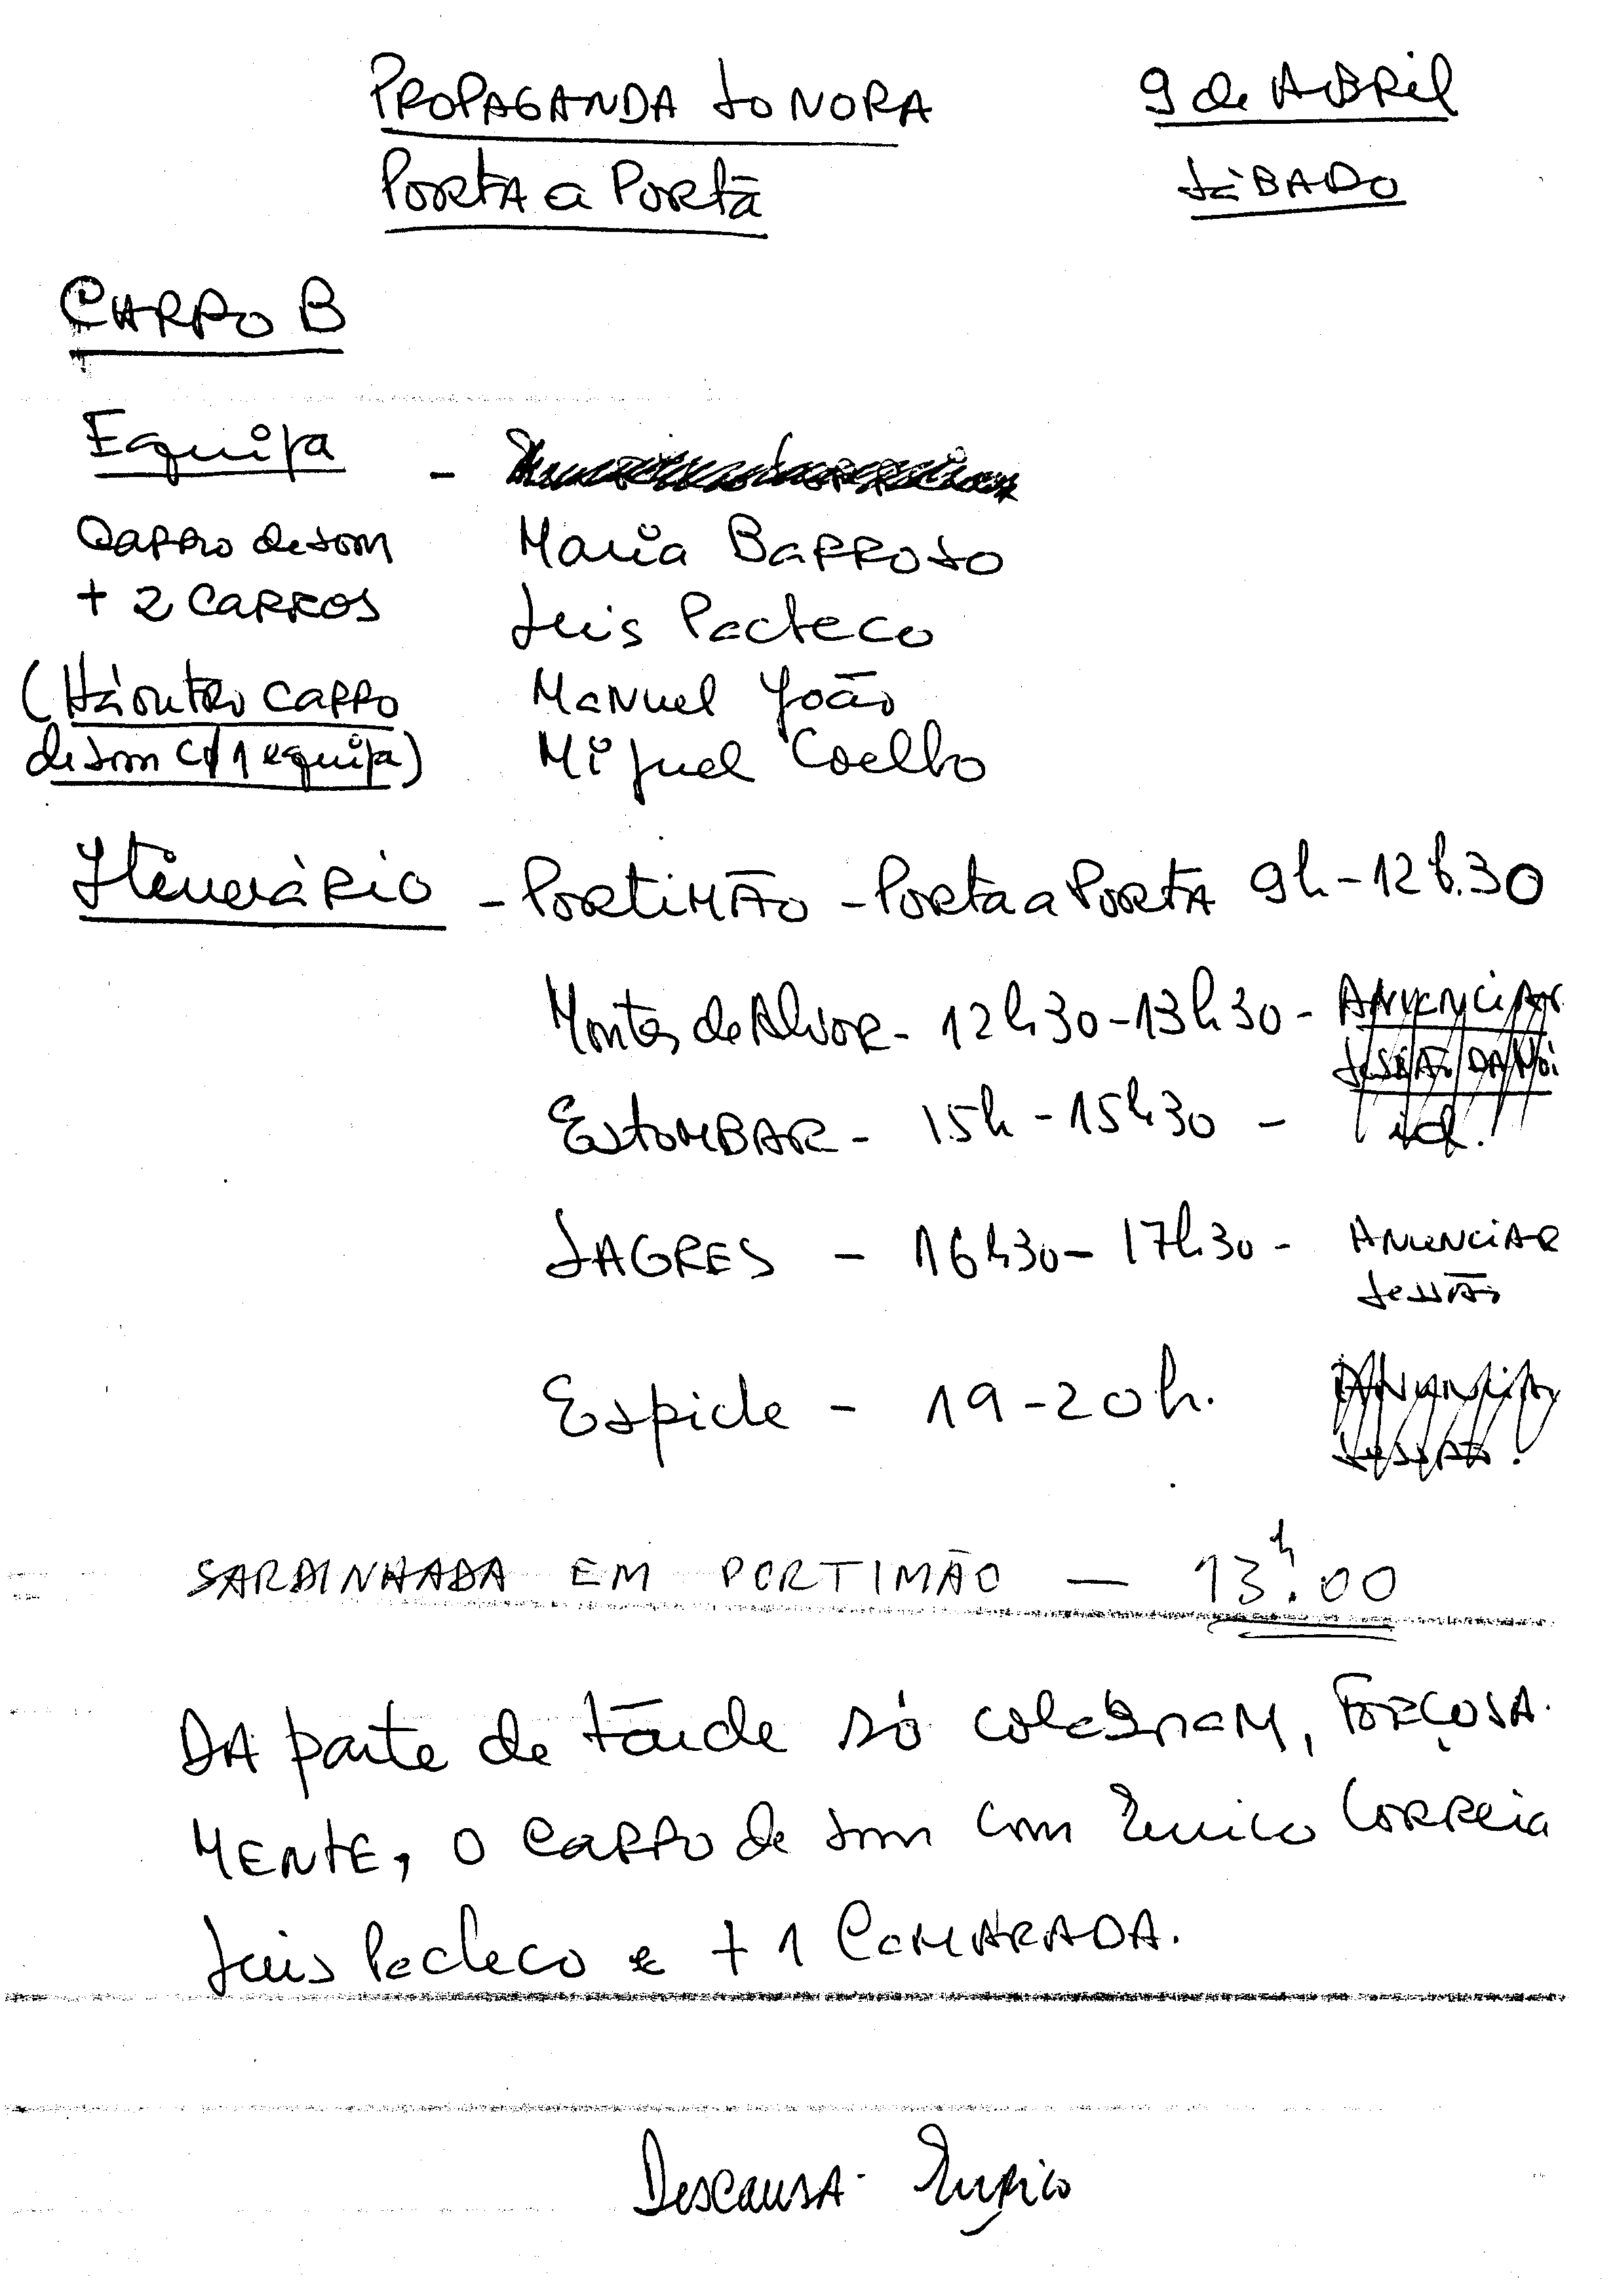 PROPAGANDA SONORA 9 de ABRIL
PORTA a PORTA SÁBADO
CARRO B
Equipa -
CARRO de som Maria BARROSO
+ 2 CARROS Luis Pacheco
(Há outro carro Manuel João
de som c/ 1 equipa) Miguel Coelho
Itenerário - PORTIMÃO - Porta a PORTA 9h - 12h.30
Montes de Alvor - 12h30 - 13h30 - ANUNCIAR
SESSÃO DA NOI
ESTOMBAR - 15h - 15h30 - id.
SAGRES - 16h30 - 17h30 - ANUNCIAR
sessão
Espiche - 19 - 20h. ANUNCIAR
SESSÃO.
SARDINHADA EM PORTIMÃO — 13h.00
DA parte de tarde só FORÇOSA-
MENTE, o carro de som com Eurico Correia
Luis Pacheco e + 1 CAMARADA.
DescansA - Eurico